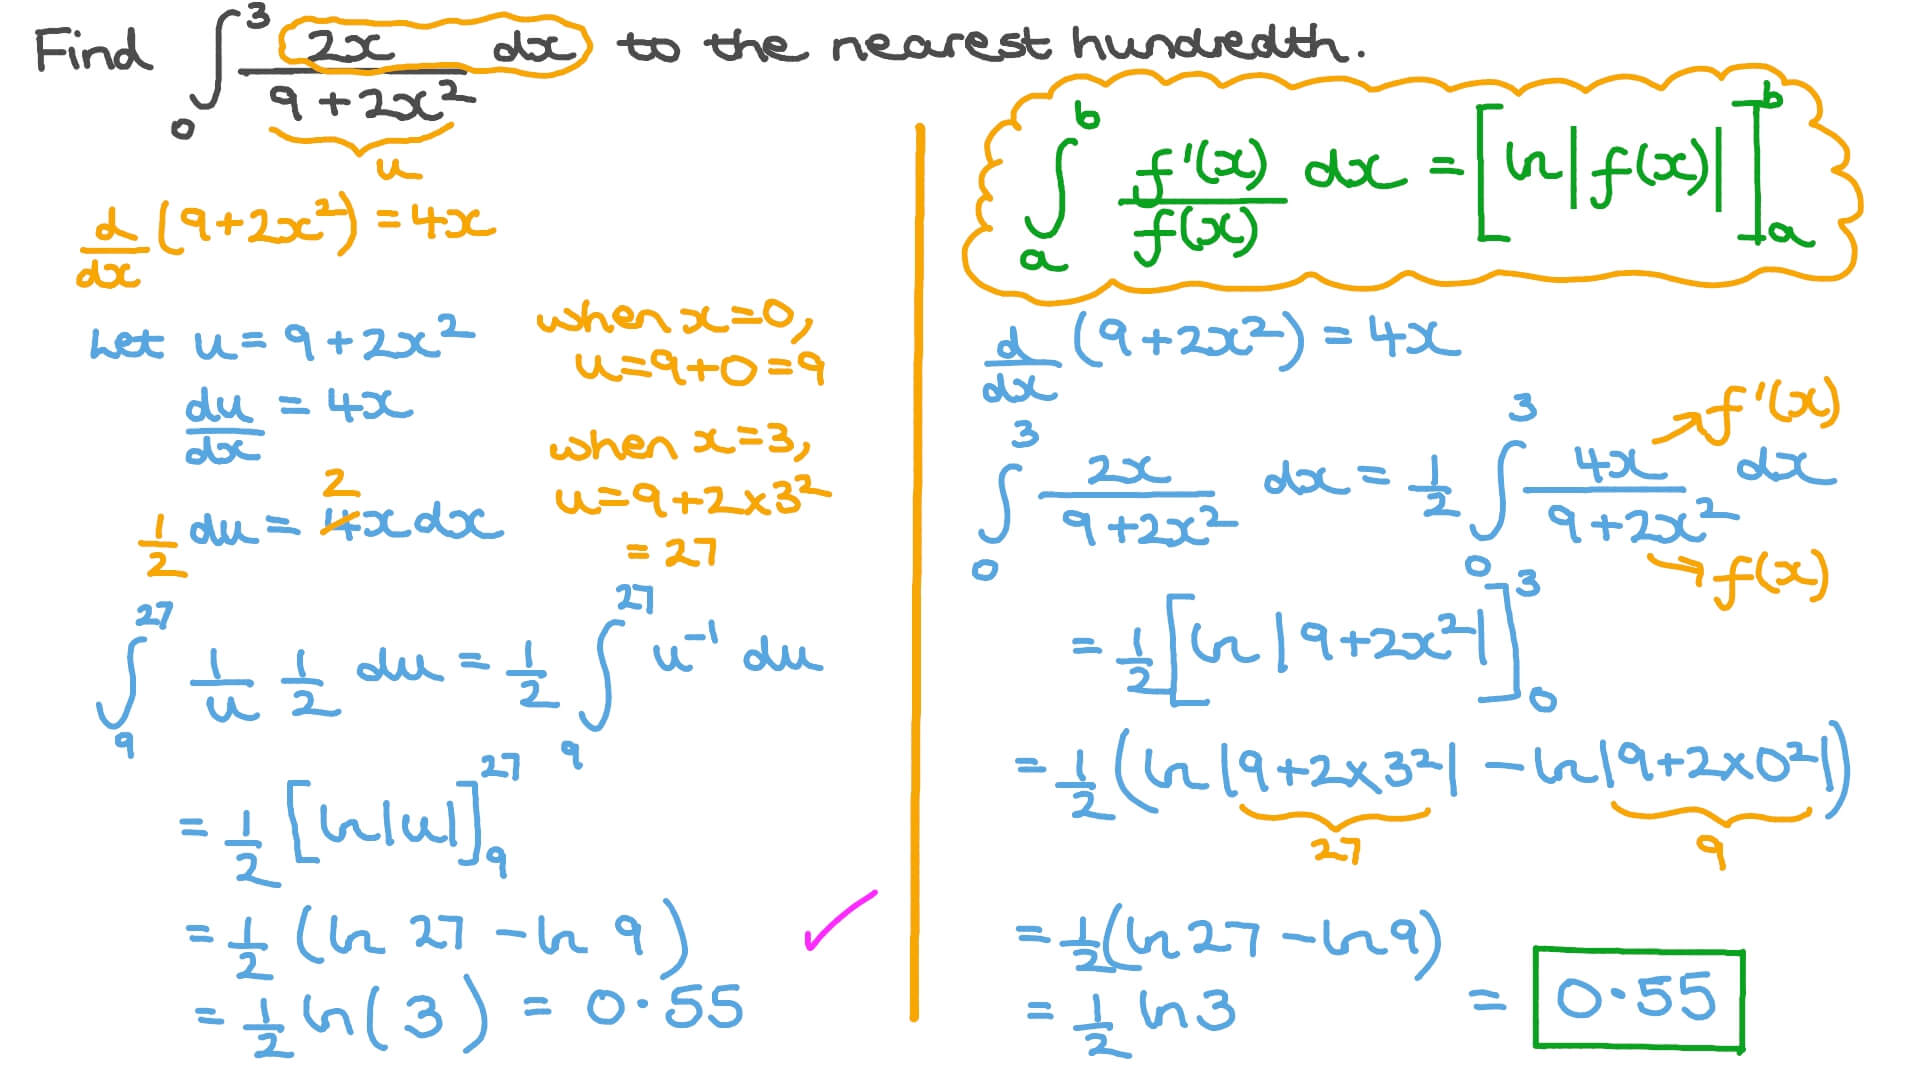 Find ∫₀³ 2x dx / 9+2x² to the nearest hundredth.
u
d/dx (9+2x²) = 4x
Let u = 9+2x²
du/dx = 4x
1/2 du = 4x dx
2
when x=0,
u=9+0=9
when x=3,
u=9+2×3²
= 27
∫₉²⁷ 1/u 1/2 du = 1/2 ∫₉²⁷ u⁻¹ du
= 1/2 [ln|u|]₉²⁷
= 1/2 (ln 27 - ln 9)
= 1/2 ln(3) = 0.55
✓
∫ₐᵇ f'(x)/f(x) dx = [ln|f(x)|]ₐᵇ
d/dx (9+2x²) = 4x
∫₀³ 2x/9+2x² dx = 1/2 ∫₀³ 4x/9+2x² dx
→ f'(x)
→ f(x)
= 1/2 [ln|9+2x²|]₀³
= 1/2 (ln|9+2×3²| - ln|9+2×0²|)
27 9
= 1/2 (ln 27 - ln 9)
= 1/2 ln 3 = 0.55